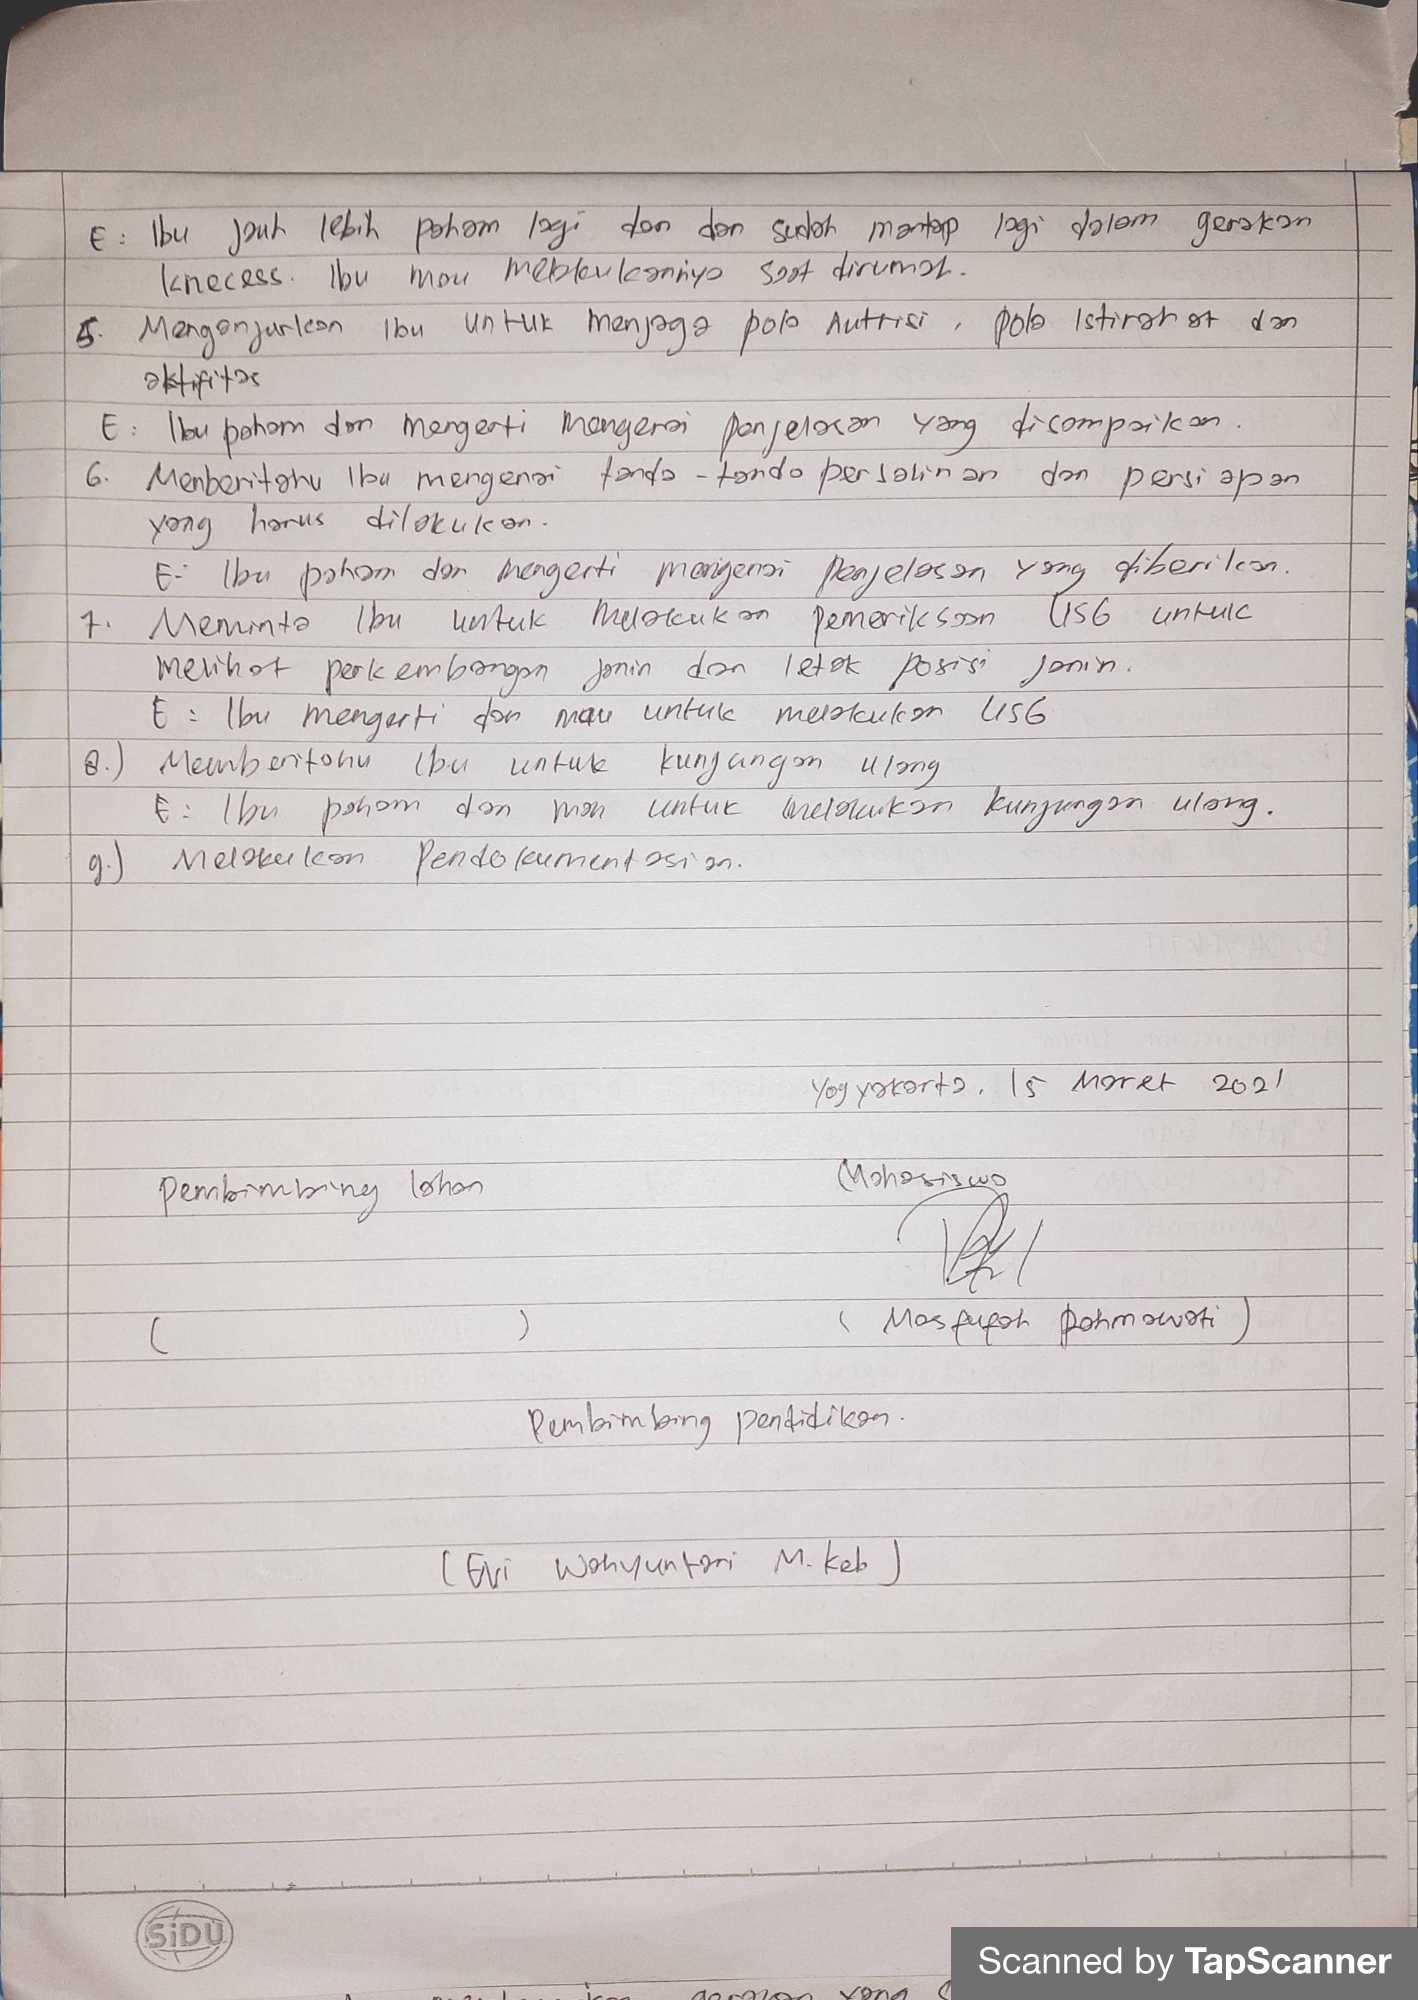 E: Ibu jauh lebih paham lagi dan dan sudah mantap lagi dalam gerakan
knecess. Ibu mau melakukannya saat dirumah.
5. Menganjurkan Ibu untuk menjaga pola Nutrisi, pola Istirahat dan
aktifitas
E: Ibu paham dan mengerti mengenai penjelasan yang disampaikan.
6. Memberitahu Ibu mengenai tanda-tanda persalinan dan persiapan
yang harus dilakukan.
E: Ibu paham dan mengerti mengenai penjelasan yang diberikan.
7. Meminta Ibu untuk melakukan pemeriksaan USG untuk
melihat perkembangan janin dan letak posisi janin.
E: Ibu mengerti dan mau untuk melakukan USG
8.) Memberitahu Ibu untuk kunjungan ulang
E: Ibu paham dan mau untuk melakukan kunjungan ulang.
9.) Melakukan Pendokumentasian.
Yogyakarta, 15 Maret 2021
Pembimbing lahan Mahasiswa
( ) (Masfufah Rahmawati)
Pembimbing pendidikan.
(Evi Wahyuntari M.Keb)
SiDU
Scanned by TapScanner
gerakan yang